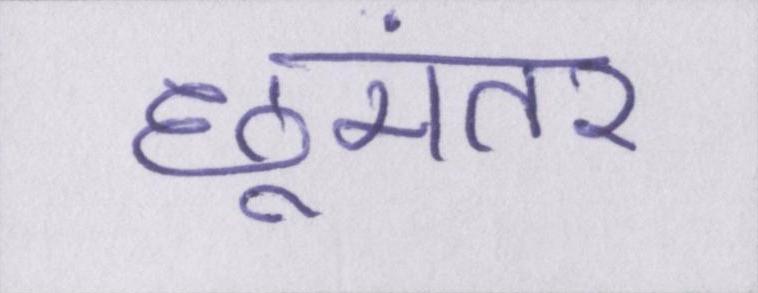 छूमंतर